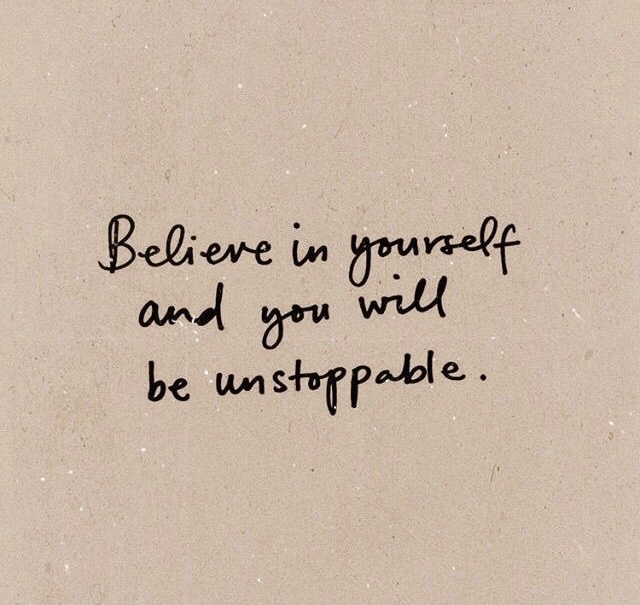 Believe in yourself
and you will
be unstoppable.